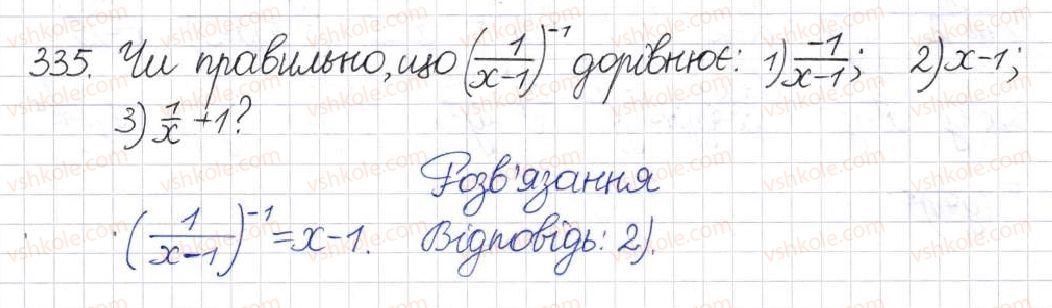 335. Чи правильно, що (1/(x-1))^-1 дорівнює: 1) -1/(x-1); 2) x-1;
3) 1/x +1?
Розв'язання
(1/(x-1))^-1 = x-1. Відповідь: 2).